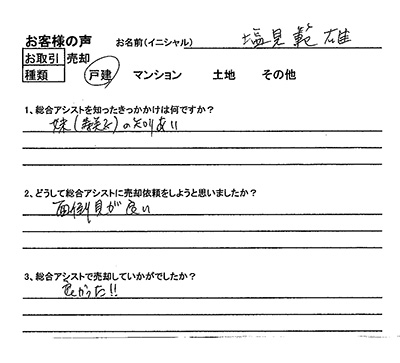 お客様の声 お名前(イニシャル) 塩見 範雄
お取引 売却
種類 戸建 マンション 土地 その他
1、総合アシストを知ったきっかけは何ですか？
妹(寿美子)の知りあい
2、どうして総合アシストに売却依頼をしようと思いましたか？
面倒見が良い
3、総合アシストで売却していかがでしたか？
良かった!!